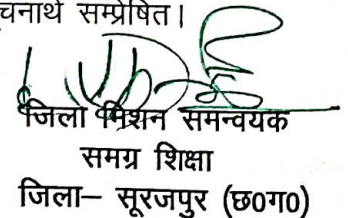 चनार्थ सम्प्रेषित।
जिला मिशन समन्वयक
समग्र शिक्षा
जिला– सूरजपुर (छ0ग0)